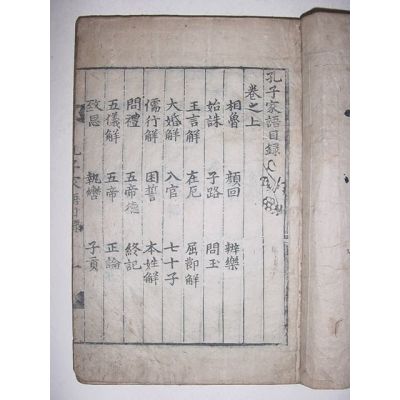 孔子家語目録
卷之上
相魯 顔回 辨樂
始誅 子路 問玉
王言解 在厄 屈節解
大婚解 入官 七十子
儒行解 困誓 本姓解
問禮 五帝德 終記
五儀解 五帝 正論
致思 執轡 子貢
孔子家語目録 一